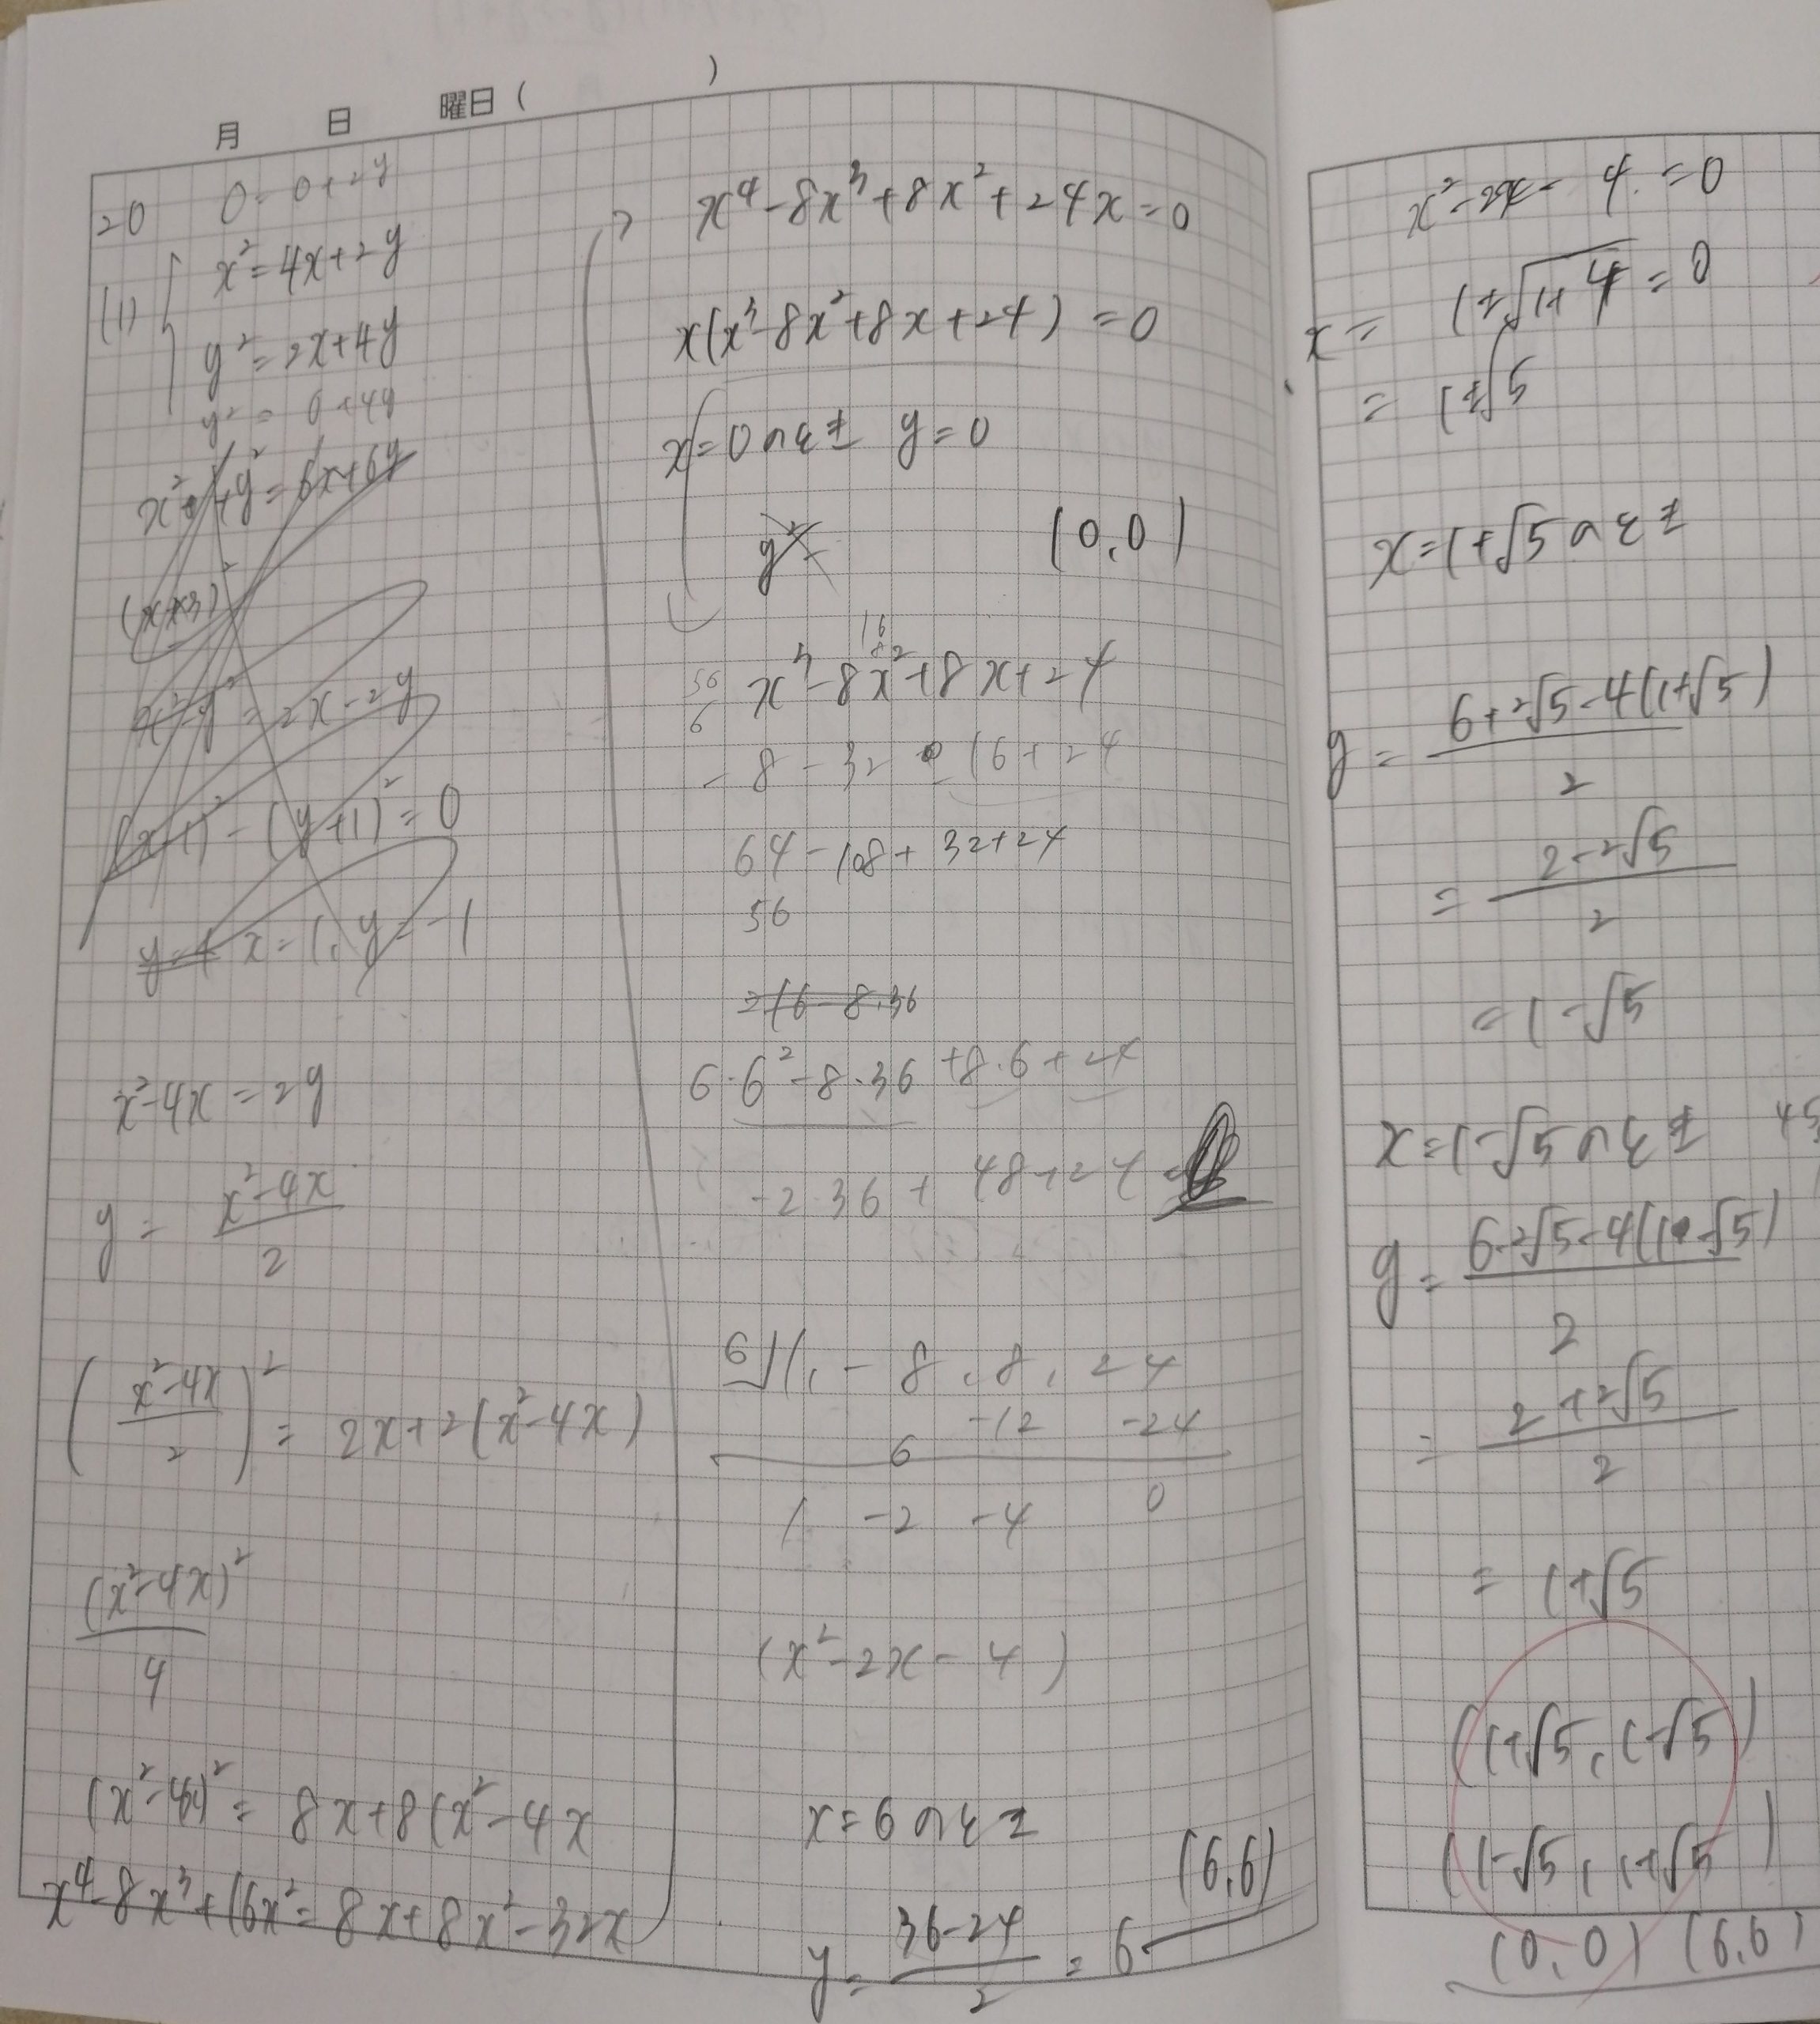 月 日 曜日 ( )
20 0=0+2y
(1) { x²=4x+2y
y²=2x+4y
y²=0+4y
x²+y²=6x+6y
x²-y²=2x-2y
(x-1)²-(y+1)²=0
x=1, y=-1
x²-4x=2y
y=(x²-4x)/2
((x²-4x)/2)²=2x+2(x²-4x)
(x²-4x)²/4
(x²-4x)²=8x+8(x²-4x
x⁴-8x³+16x²=8x+8x²-32x
x⁴-8x³+8x²+24x=0
x(x³-8x²+8x+24)=0
x=0のとき y=0
(0,0)
16
56 x³-8x²+8x+24
6
-8-32-16+24
64-108+32+24
56
216-8.36
6·6²-8·36+8·6+24
-2·36+48+24
6 1, -8, 8, 24
6 -12 -24
1 -2 -4 0
(x²-2x-4)
x=6のとき
(6,6)
y=(36-24)/2=6
x²-2x-4=0
x=1±√1+4=0
=1±√5
x=1+√5のとき
y=(6+2√5-4(1+√5))/2
=(2-2√5)/2
=1-√5
x=1-√5のとき
y=(6-2√5-4(1-√5))/2
=(2+2√5)/2
=1+√5
(1+√5, 1-√5)
(1-√5, 1+√5)
(0,0) (6,6)